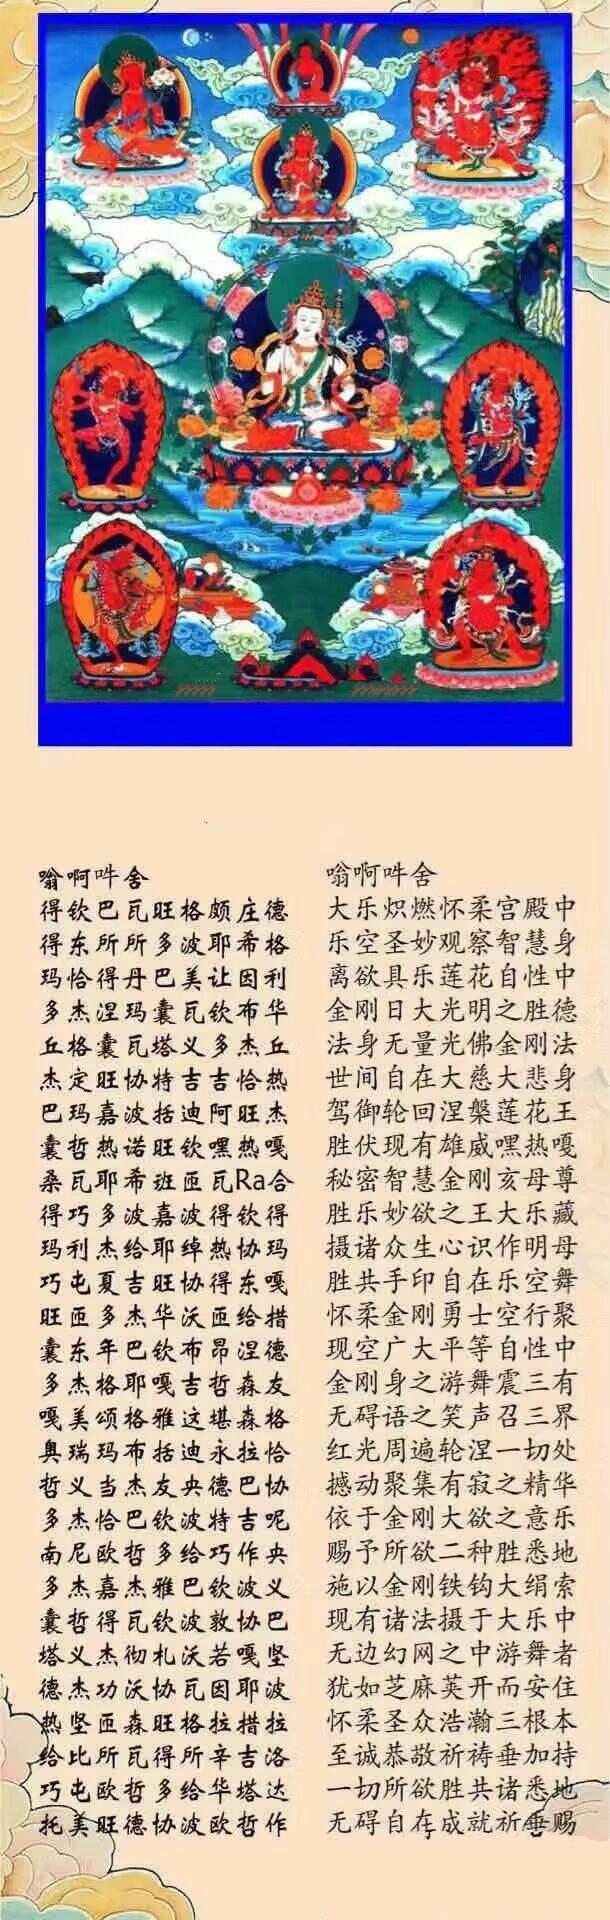 嗡啊吽舍
得钦巴瓦旺格颇庄德
得东所所多波耶希格
玛恰得丹巴美让因利
多杰涅玛囊瓦钦布华
丘格囊瓦塔义多杰丘
杰定旺协特吉吉恰热
巴玛嘉波括迪阿旺杰
囊哲热诺旺钦嘿热嘎
桑瓦耶希班匝瓦Ra合
得巧多波嘉波得钦得
玛利杰给耶绰热协玛
巧屯夏吉旺协得东嘎
旺匝多杰华沃匝给措
囊东年巴钦布昂涅德
多杰格耶嘎吉哲森友
嘎美颂格雅这堪森格
奥瑞玛布括迪永拉恰
哲义当杰友央德巴协
多杰恰巴钦波特吉呢
南尼欧哲多给巧作央
多杰嘉杰雅巴钦波义
囊哲得瓦钦波敦协巴
塔义杰彻札沃若嘎坚
德杰功沃协瓦因耶波
热坚匝森旺格拉措拉
给比所瓦得所辛吉洛
巧屯欧哲多给华塔达
托美旺德协波欧哲作
嗡啊吽舍
大乐炽燃怀柔宫殿中
乐空圣妙观察智慧身
离欲具乐莲花自性中
金刚日大光明之胜德
法身无量光佛金刚法
世间自在大慈大悲身
驾御轮回涅槃莲花王
胜伏现有雄威嘿热嘎
秘密智慧金刚亥母尊
胜乐妙欲之王大乐藏
摄诸众生心识作明母
胜共手印自在乐空舞
怀柔金刚勇士空行聚
现空广大平等自性中
金刚身之游舞震三有
无碍语之笑声召三界
红光周遍轮涅一切处
撼动聚集有寂之精华
依于金刚大欲之意乐
赐予所欲二种胜悉地
施以金刚铁钩大绢索
现有诸法摄于大乐中
无边幻网之中游舞者
犹如芝麻荚开而安住
怀柔圣众浩瀚三根本
至诚恭敬祈祷垂加持
一切所欲胜共诸悉地
无碍自在成就祈垂赐